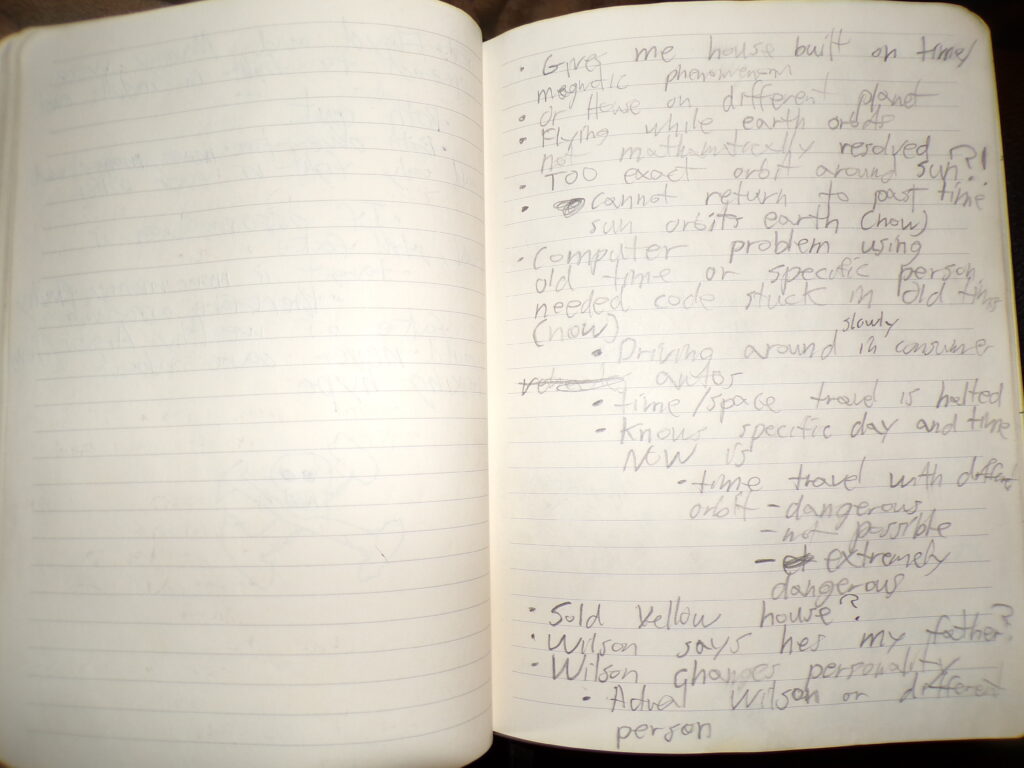 • Give me house built on time/
magnetic phenomenon
• or House on different planet
• Flying while earth orbits
not mathamatically resolved
• TOO exact orbit around sun?!
• cannot return to past time
sun orbits earth (now)
• Computer problem using
old time or specific person
needed code stuck in old time
(now)
• Driving around slowly in consumer
autos
• time/space travel is halted
- Knows specific day and time
NOW is
• time travel with different
orbit - dangerous
- not possible
- extremely
dangerous
• Sold Yellow house?
• Wilson says hes my father?
- Wilson changes personality
• Actual Wilson or different
person